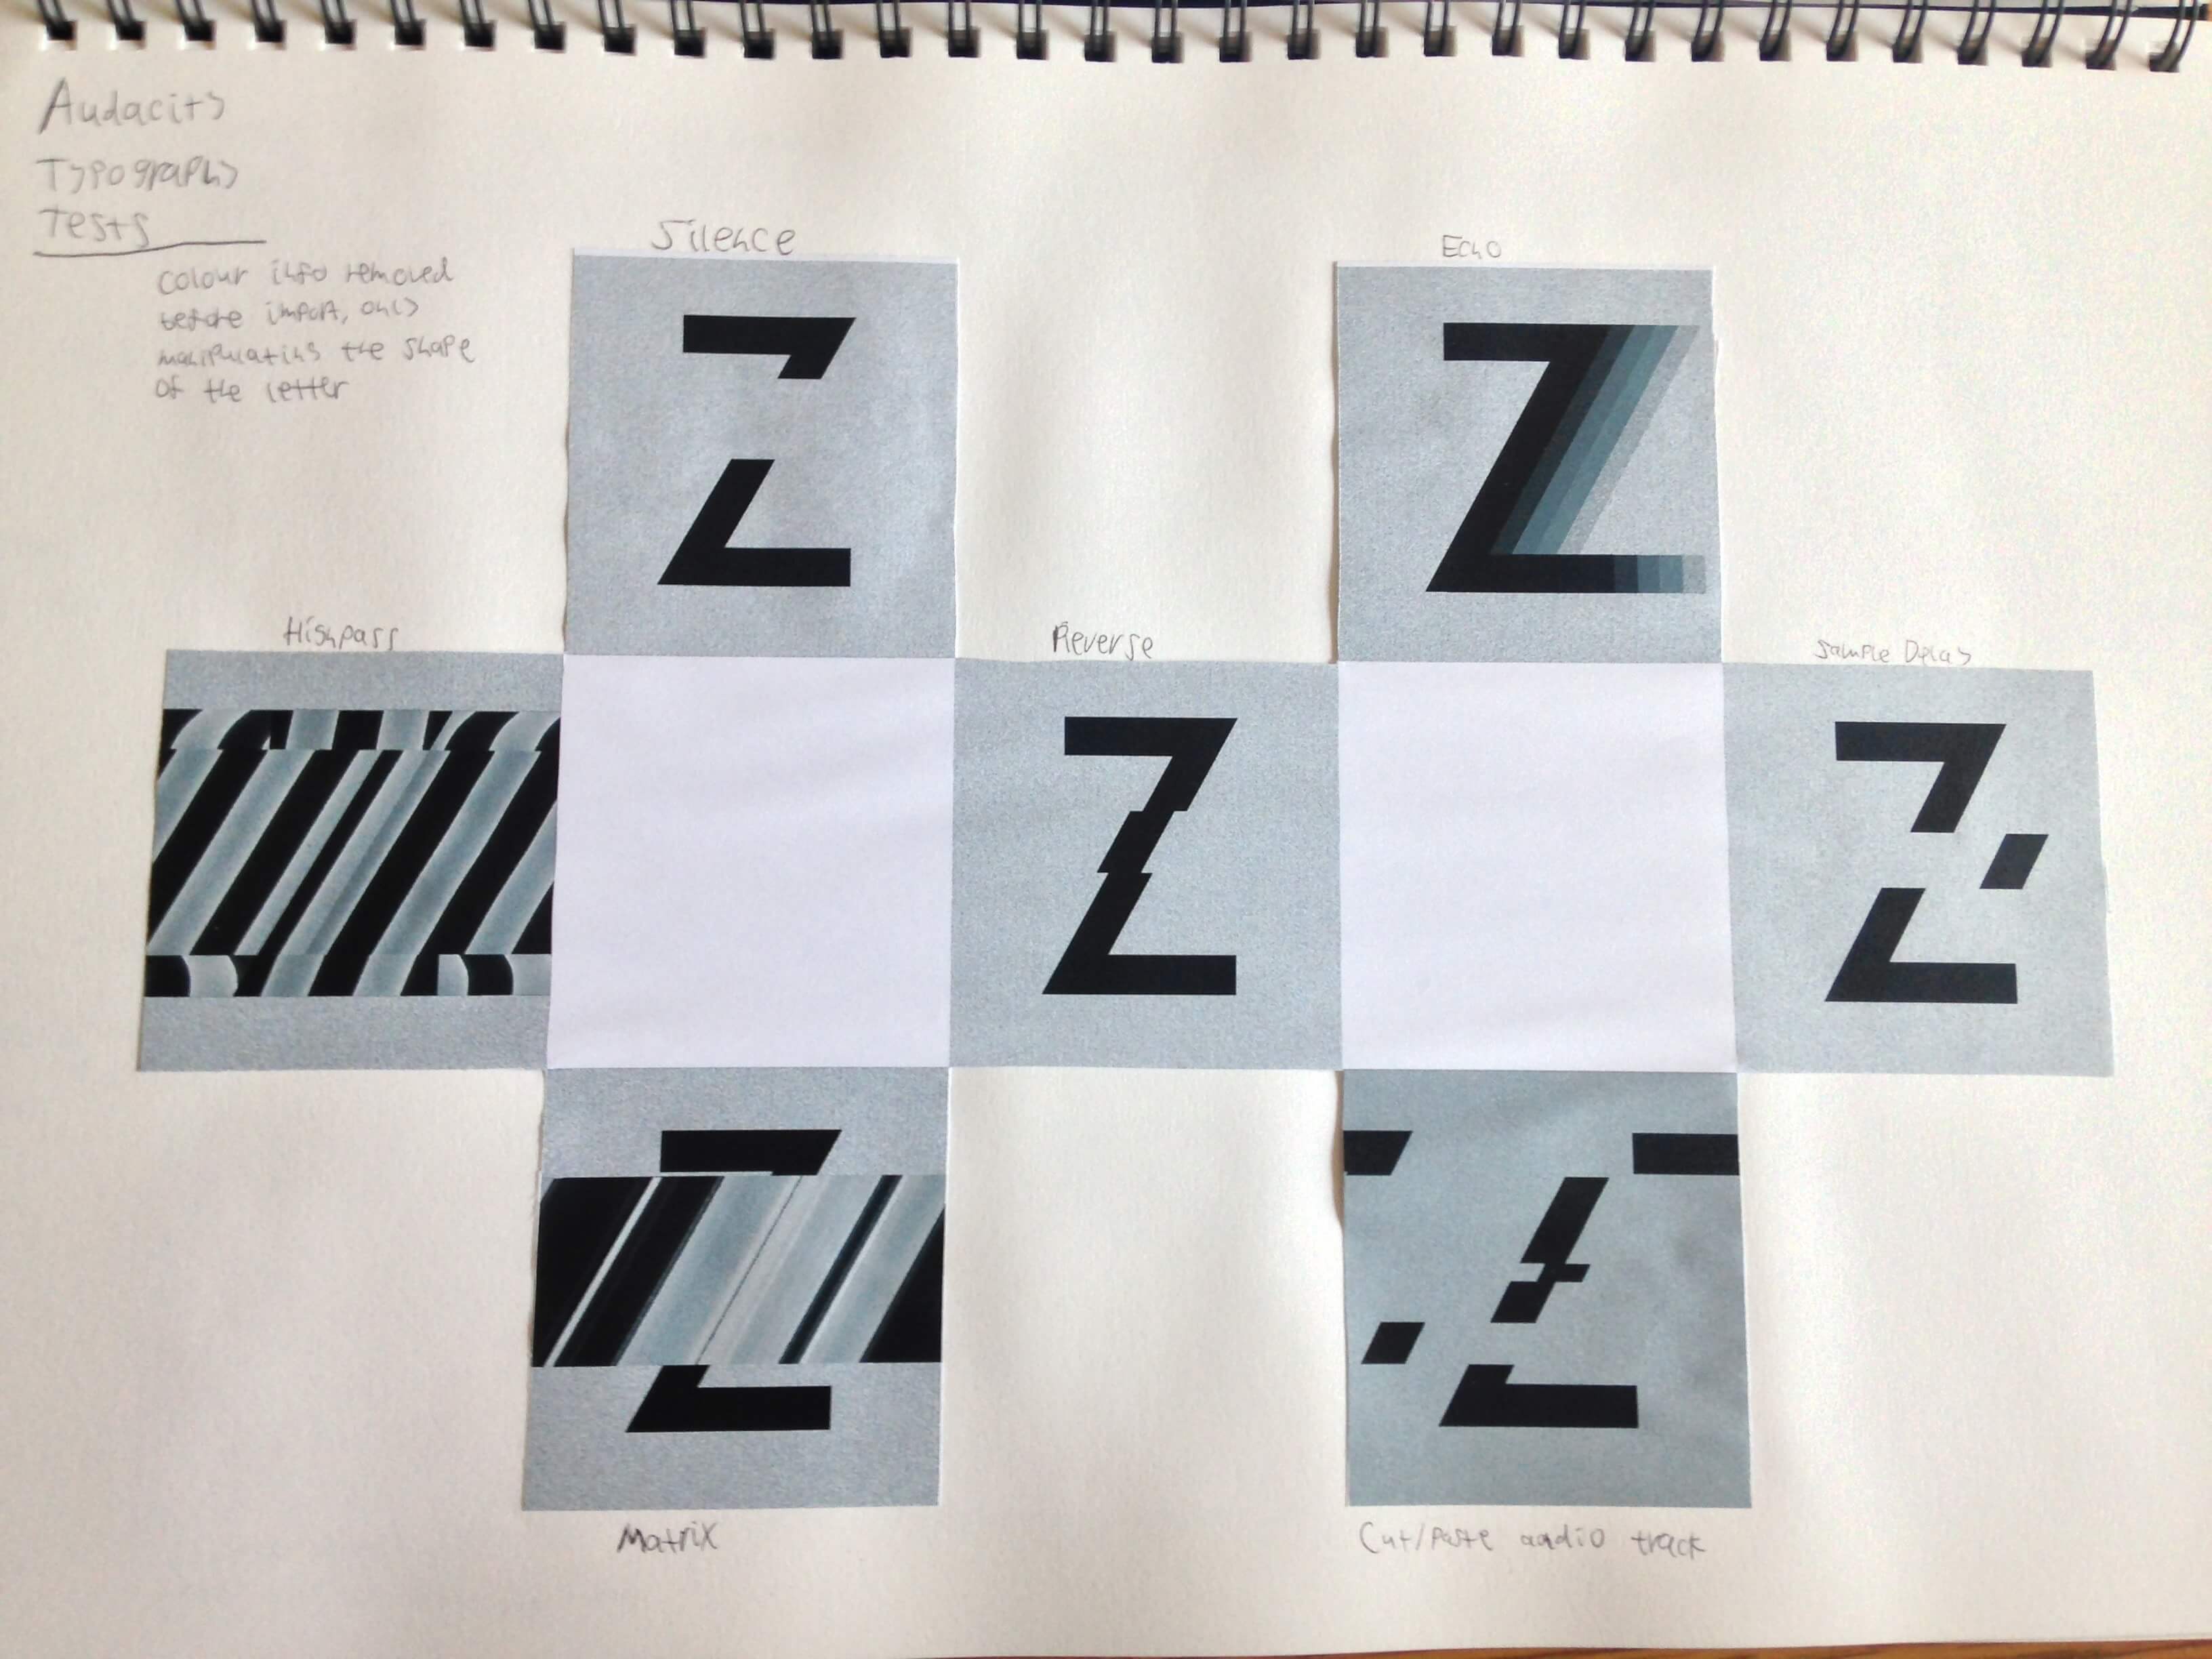 Audacity
Typography
Tests
Colour info removed
before import, only
manipulating the shape
of the letter
Silence
Echo
Highpass
Reverse
Sample Delay
Z
Z
Z
Z
Z
Matrix
Cut/Paste audio track